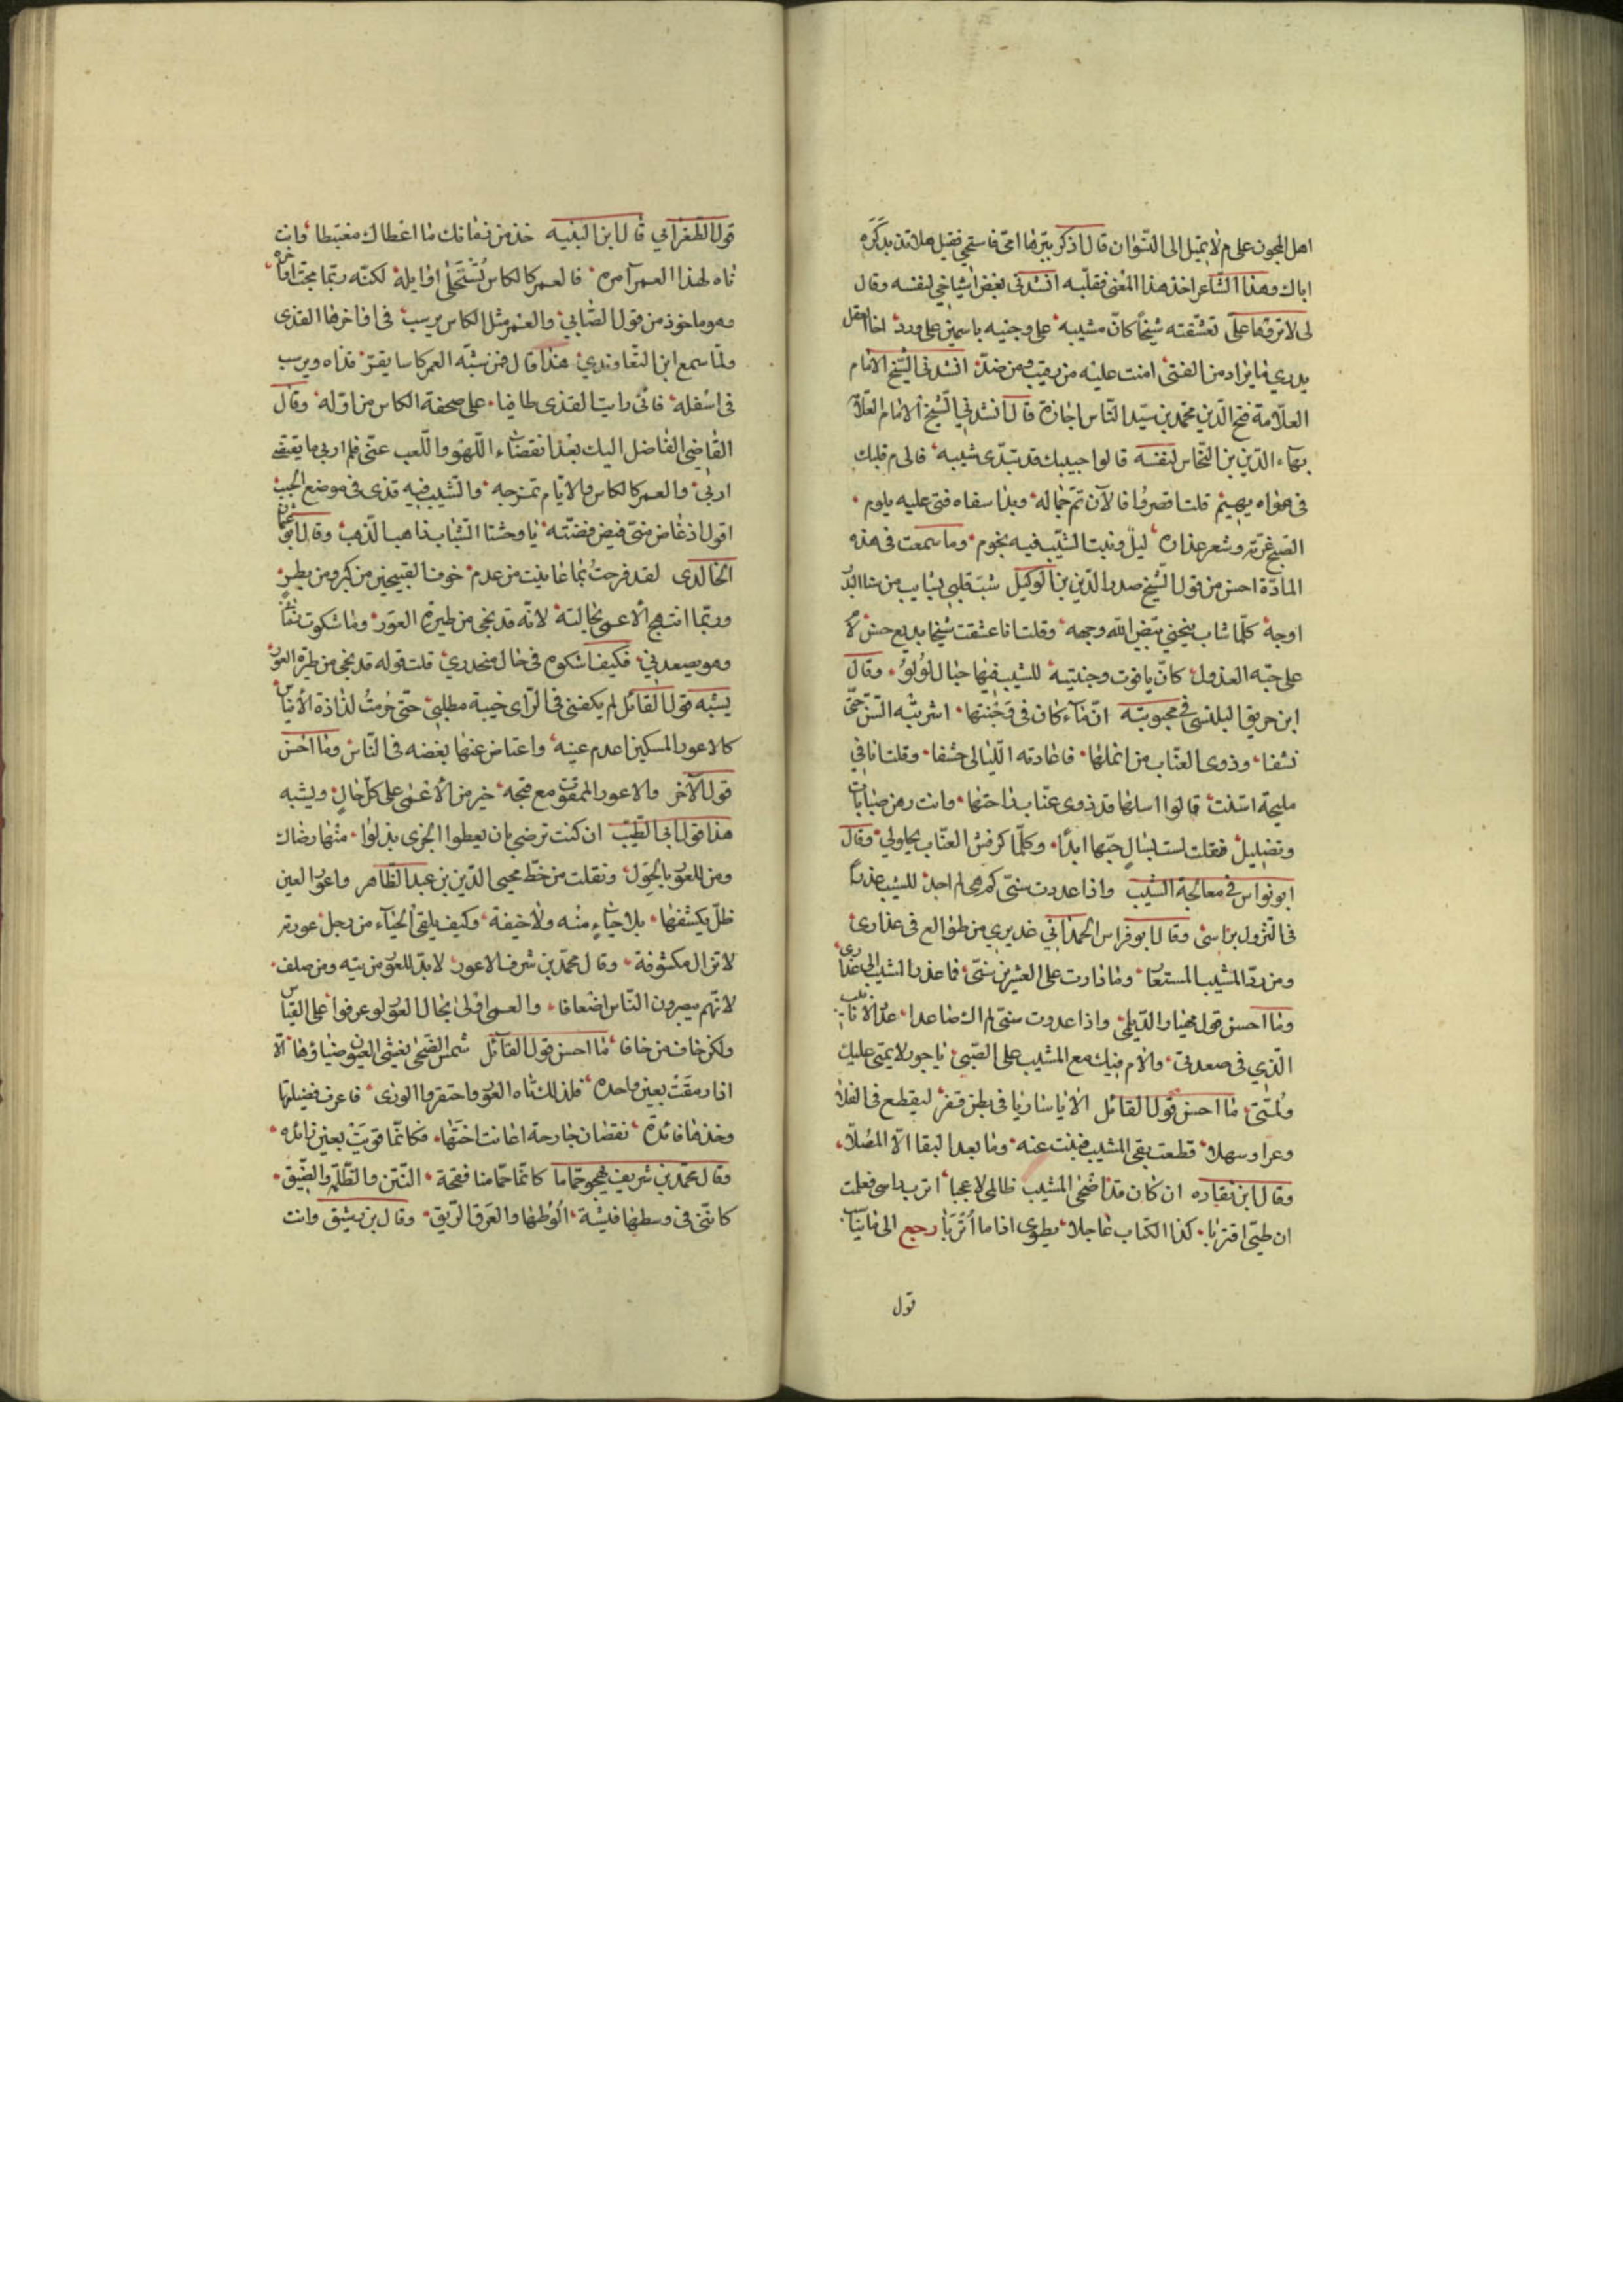 اهل المجون علی م لا تمیل الی النسوان قال اذکر بترها امی فاستحی فقیل هلا تذ بذکره
اباك وهذا الشاعر اخذ هذا المعنی فقلبه انشدنی بعض اشیاخی لنفسه وقال
لی لا ترفها علی تعشقته شیخا کان مشیبه علی وجنتیه یاسمین علی ورد اخا العقل
یدری ما یراد من الفتی امنت علیه من رقیب ومن ضد انشدنی الشیخ الامام
العلامة فتح الدین محمد بن سید الناس اجازة قال انشدنی الشیخ الامام العلا
بهاء الدین بن النحاس لنفسه قالوا حبیبك قد تبدی شیبه فالی م قلبك
فی هواه یهیم قلت اقصروا فالآن تم جماله وبدا سفاه فتی علیه یلوم
الصبح غرته وشعر عذاره لیل ونبت الشیب فیه نجوم وما سمعت فی هذه
المادة احسن من قول الشیخ صدر الدین بن الوکیل شب قلبی بشایب من سنا البد
اوجه کلما شاب ینحنی بیض الله وجهه وقلت انا عشقت شیخا بدیع حسن لا
علی حبه العذول کان یاقوت وجنتیه للشیب فیها حبا لولو وقال
ابن حریق البلنسی فی محبوبته ان ماء کان فی وجنتها اشربته السن حتی
نشفا وذوی العناب من انملها فاعادته اللیالی حشفا وقلت انا فی
ملیحة اسنت قالوا اسلها قد ذوی عناب راحتها وانت رهن صبابات
وتضلیل فقلت لست بسال حبها ابدا وکلما کرفس العناب یحلو لی وقال
ابو نواس فی معالجة الشیب واذا عددت سنی کم هی لم اجد للشیب عذرا
فی النزول براسی وقال ابو فراس الحمدانی عذیری من طوالع فی عذاری
ومن رد المشیب المستعار وما زادت علی العشرین سنی فما عذر المشیب الی عذاری
وما احسن قول مهیار الدیلمی واذا عددت سنی لم اك صاعدا عدد الانابیب
الذی فی صعدتی والام فیك مع المشیب علی الصبی یا جور لایمتی علیك
ولمتی ما احسن قول القائل الا یا ساریا فی بطن قفر لیقطع فی الفلا
وعرا وسهلا قطعت نقی المشیب وبنت عنه وما بعد النقا الا المصلا
وقال ابن نقاده ان کان قد اضحی المشیب ظالمی لا عجبا اترب راسی فعلمت
ان طیی اقتربا کذا الکتاب عاجلا یطوی اذا ما أتربا رجع الی ما تبنا
قول
قول الطغرائی قال ابن النبیه خذ من زمانك ما اعطاك مغتبطا وانت
ناه لهذا العمر آمره فالعمر کالکاس تستحلی اوایله لکنه ربما مجت اواخره
وهو ماخوذ من قول الصابی والعمر مثل الکاس یرسب فی اواخرها القذی
ولما سمع ابن التعاویذی هذا قال فمن شبه العمر کاسا یقر قذاه ویرسب
فی اسفله فانی رایت القذی طافیا علی صحفة الکاس من اوله وقال
القاضی الفاضل الیك بعد انقضاء اللهو واللعب عنی فلم ار بی ما یقتضی
اربی والعمر کالکاس والایام تمزجه والشیب فیه قذی فی موضع الحبب
اقول اذ غاض منی فیض فضته یا وحشتا الشباب ذاهب الذهب وقال ابو عثمان
الخالدی لقد فرحت بما عاینت من عدم خوف القبیحین من کبر ومن بطر
وربما ابتهج الاعمی بحالته لانه قد نجی من طیرة العور وما شکوت زمانی
وهو یصعد بی فکیف اشکوه فی حال منحدری قلت قوله قد نجی من طیرة العور
یشبه قول القائل لم یکفنی فی الرای خیبة مطلبی حتی حرمت لذاذة الایناس
کالاعور المسکین اعدم عینه واعتاض عنها بغضه فی الناس وما احسن
قول الآخر والاعور الممقوت مع قبحه خیر من الاعمی علی کل حال ویشبه
هذا قول ابی الطیب ان کنت ترضی بان یعطوا الجزی بذلوا منها رضاك
ومن للعور بالحول ونقلت من خط محیی الدین بن عبد الظاهر واعور العین
ظل یکشفها بلا حیاء منه ولا خیفة وکیف یلقی الحیاء من رجل عورته
لا تزال مکشوفة وقال محمد بن شرف الاعور لا بد للعور من تیه ومن صلف
لانهم یبصرون الناس انصافا والعمی اولی بحال العور لو عرفوا علی القیاس
ولکن خاف من خافا ما احسن قول القائل شمس الضحی یغشی العیون ضیاؤها الا
اذا رمقت بعین واحده فلذلك تاه العور واحتقروا الوری فاعرف فضیلتها
وخذها فائدة نقصان جارحة اعانت اختها فکانما قویت بعین زائده
وقال محمد بن شریف یهجو حماما کانما حمامنا فقحة النتن والظلمة والضیق
کاننی فی وسطها فیشة الوطها والعرق الریق وقال بن رشیق وانت